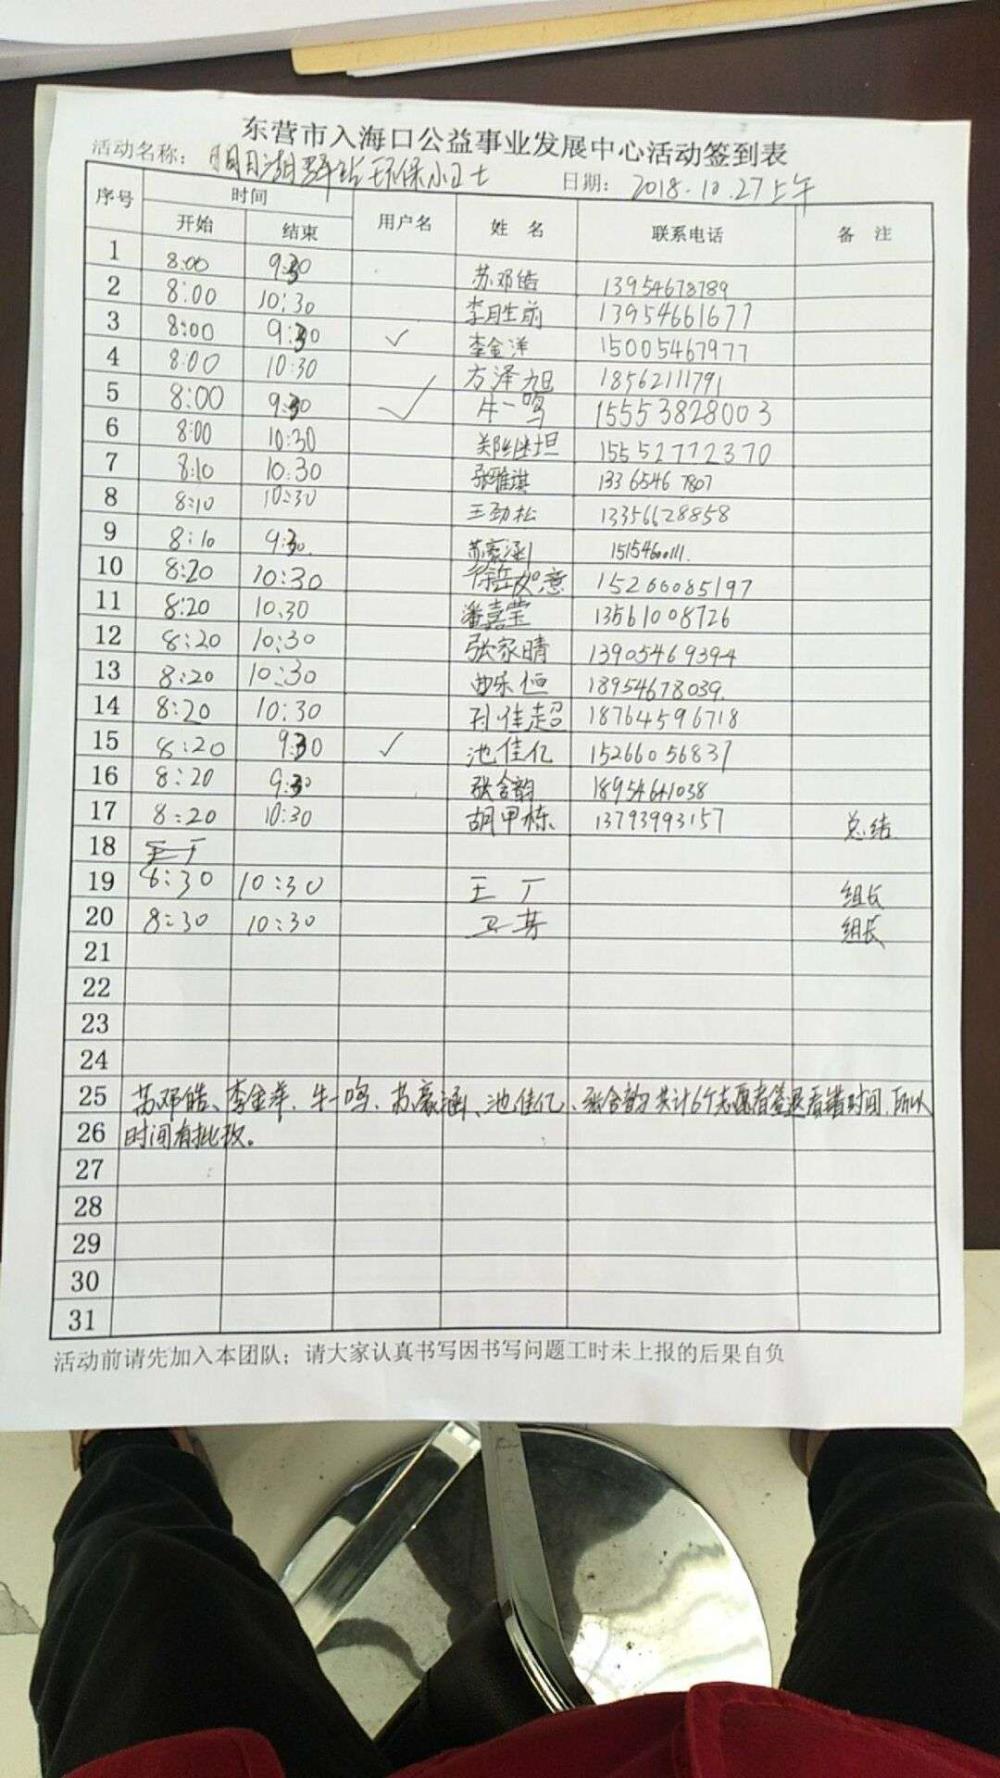 东营市入海口公益事业发展中心活动签到表
活动名称： 明月湖驿站环保小卫士 日期： 2018.10.27上午
序号 时间 用户名 姓 名 联系电话 备 注
开始 结束
1 8:00 9:30 苏邓皓 13954678789
2 8:00 10:30 李胜前 13954661677
3 8:00 9:30 ✓ 李金洋 15005467977
4 8:00 10:30 方泽旭 18562111791
5 8:00 9:30 ✓ 牛一鸣 15553828003
6 8:00 10:30 郑继坦 15552772370
7 8:10 10:30 张雅淇 13365467807
8 8:10 10:30 王劲松 13356628858
9 8:10 9:30. 苏豪涵 15154600111.
10 8:20 10:30 徐岳如意 15266085197
11 8:20 10.30 潘嘉莹 13561008726
12 8:20 10:30 张家晴 13905469394
13 8:20 10:30 曲乐恒 18954678039.
14 8:20 10:30 孙佳超 18764596718
15 8:20 9:30 ✓ 池佳亿 15266056837
16 8:20 9:30 张含韵 18954641038
17 8:20 10:30 胡甲栋 13793993157 总结
18
19 8:30 10:30 王厂 组长
20 8:30 10:30 卫芳 组长
21
22
23
24
25 苏邓皓、李金洋、牛一鸣、苏豪涵、池佳亿、张含韵共计6个志愿者签退看错时间，所以
26 时间有批改。
27
28
29
30
31
活动前请先加入本团队；请大家认真书写因书写问题工时未上报的后果自负